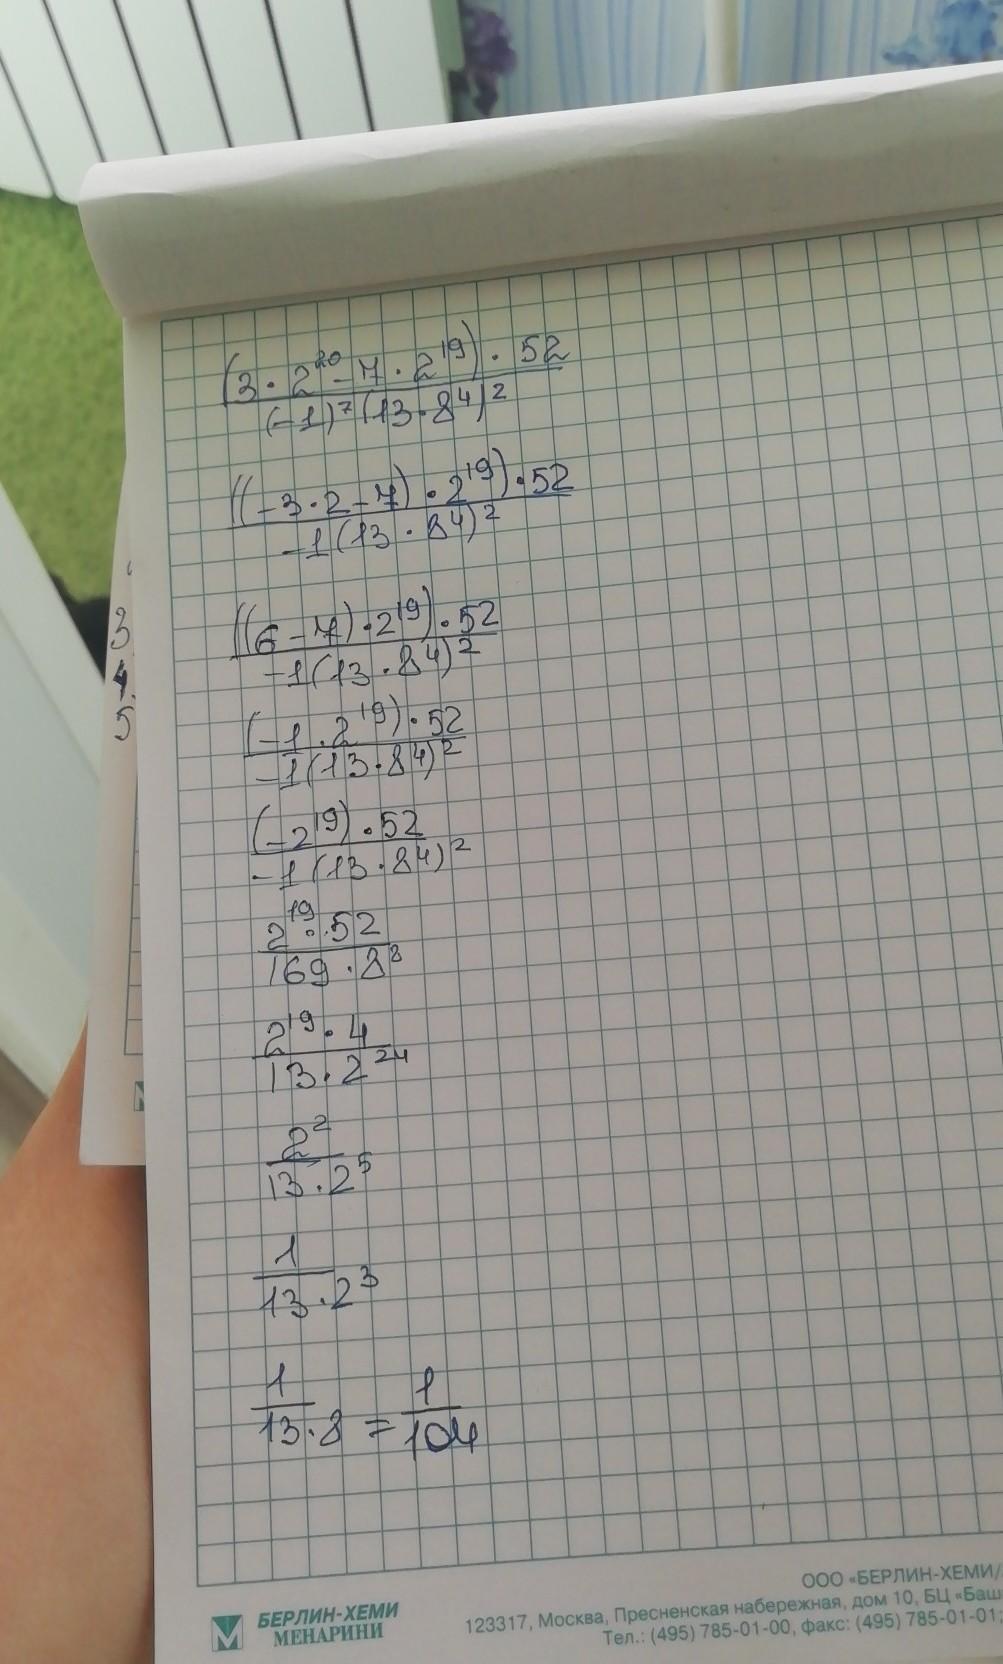 (3 · 2²⁰ - 7 · 2¹⁹) · 52
(-1)⁷ (13 · 8⁴)²
((-3 · 2 - 7) · 2¹⁹) · 52
-1 (13 · 8⁴)²
((6 - 7) · 2¹⁹) · 52
-1 (13 · 8⁴)²
(-1 · 2¹⁹) · 52
-1 (13 · 8⁴)²
(-2¹⁹) · 52
-1 (13 · 8⁴)²
2¹⁹ · 52
169 · 8⁸
2¹⁹ · 4
13 · 2²⁴
2²
13 · 2⁵
1
13 · 2³
1
13 · 8
=
1
104
3
4.
5
БЕРЛИН-ХЕМИ
МЕНАРИНИ
ООО «БЕРЛИН-ХЕМИ/
123317, Москва, Пресненская набережная, дом 10, БЦ «Баш
Тел.: (495) 785-01-00, факс: (495) 785-01-01;